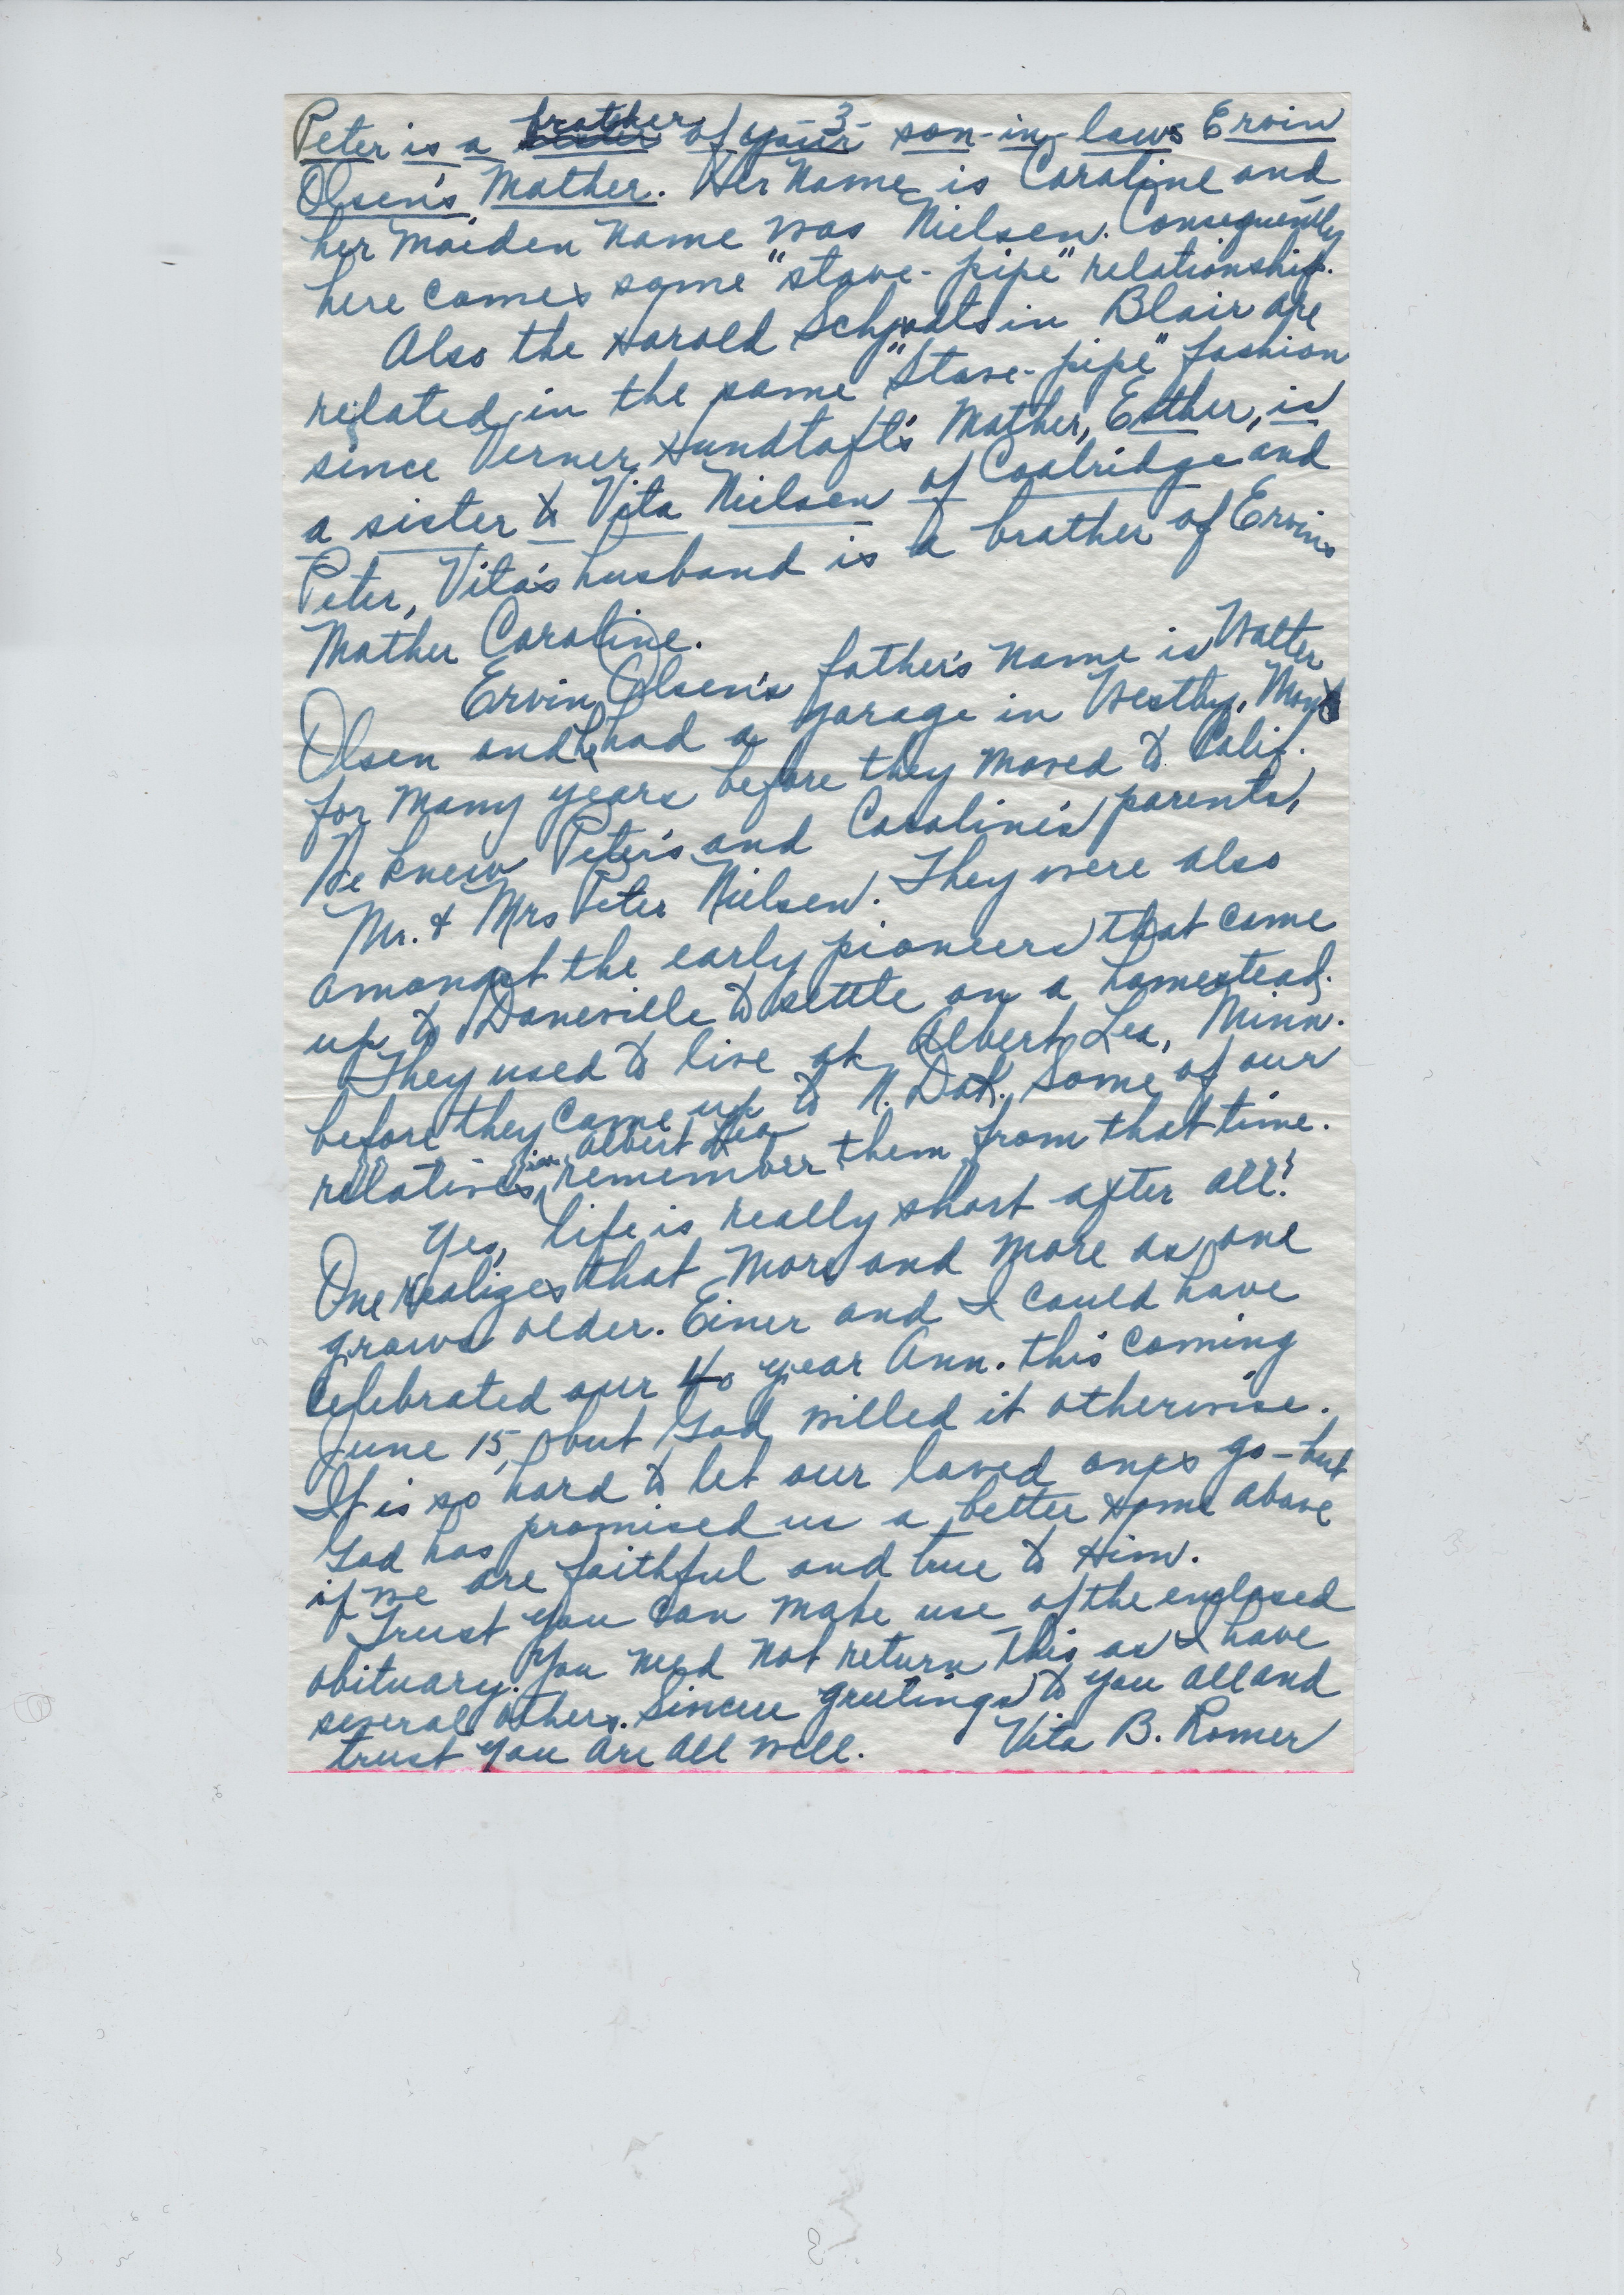 -3-
Peter is a brother of your son-in-laws Ervin
Olsen's Mother. Her Name is Caroline and
her maiden name was Nielsen. Consequently
here comes some "stove-pipe" relationship.
Also the Harold Schjodts in Blair are
related in the same "Stove-pipe" fashion
since Verner Hundtoft's Mother, Esther, is
a sister to Vita Nielsen of Coalridge and
Peter, Vita's husband is a brother of Ervins
Mother Caroline.
Ervin Olsen's father's name is Walter
Olsen and he had a garage in Westby, Mont
for many years before they moved to Calif.
We knew Peter's and Caroline's parents,
Mr. & Mrs Peter Nielsen. They were also
amongst the early pioneers that came
up to Daneville to settle on a homestead.
They used to live at Albert Lea, Minn.
before they came up to N. Dak. Some of our
relatives in Albert Lea remember them from that time.
Yes, life is really short after all!
One realizes that more and more as one
grows older. Einer and I could have
celebrated our 40 year Ann. this coming
June 15, but God willed it otherwise.
It is so hard to let our loved ones go - but
God has promised us a better Home above
if we are faithful and true to Him.
Trust you can make use of the enclosed
obituary. You need not return this as I have
several others. Sincere greetings to you all and
trust you are all well. Vita B. Romer